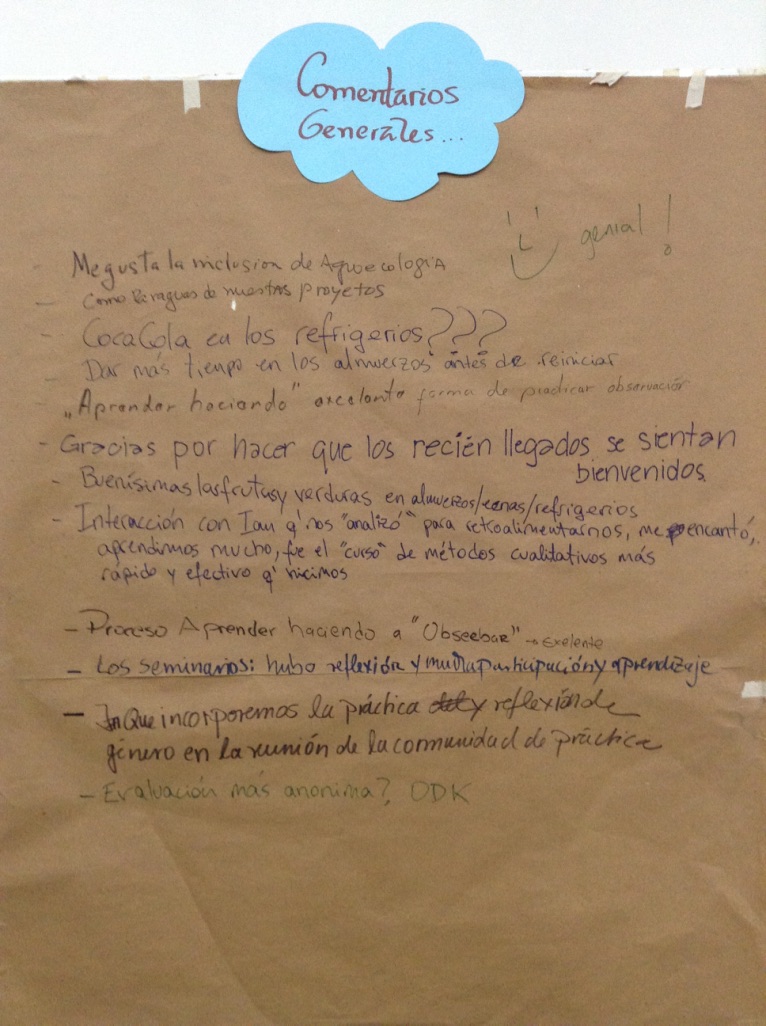 Comentarios
Generales...
genial!
- Me gusta la inclusion de Agroecologia
- Como Paraguas de nuestros proyetos
- CocaCola en los refrigerios???
- Dar más tiempo en los almuerzos antes de reiniciar
- "Aprender haciendo" excelente forma de practicar observación
- Gracias por hacer que los recién llegados se sientan
bienvenidos.
- Buenísimas las frutas y verduras en almuerzos/cenas/refrigerios
- Interacción con Ian q' nos "analizó" para retroalimentarnos, me encantó,
aprendimos mucho, fue el "curso" de métodos cualitativos más
rápido y efectivo q' hicimos
- Proceso Aprender haciendo a "Obseebar" → exelente
- Los seminarios: hubo reflexión y mucha participación y aprendizaje
- Que incorporemos la práctica y reflexión de
género en la reunión de la comunidad de práctica
- Evaluación más anonima? ODK